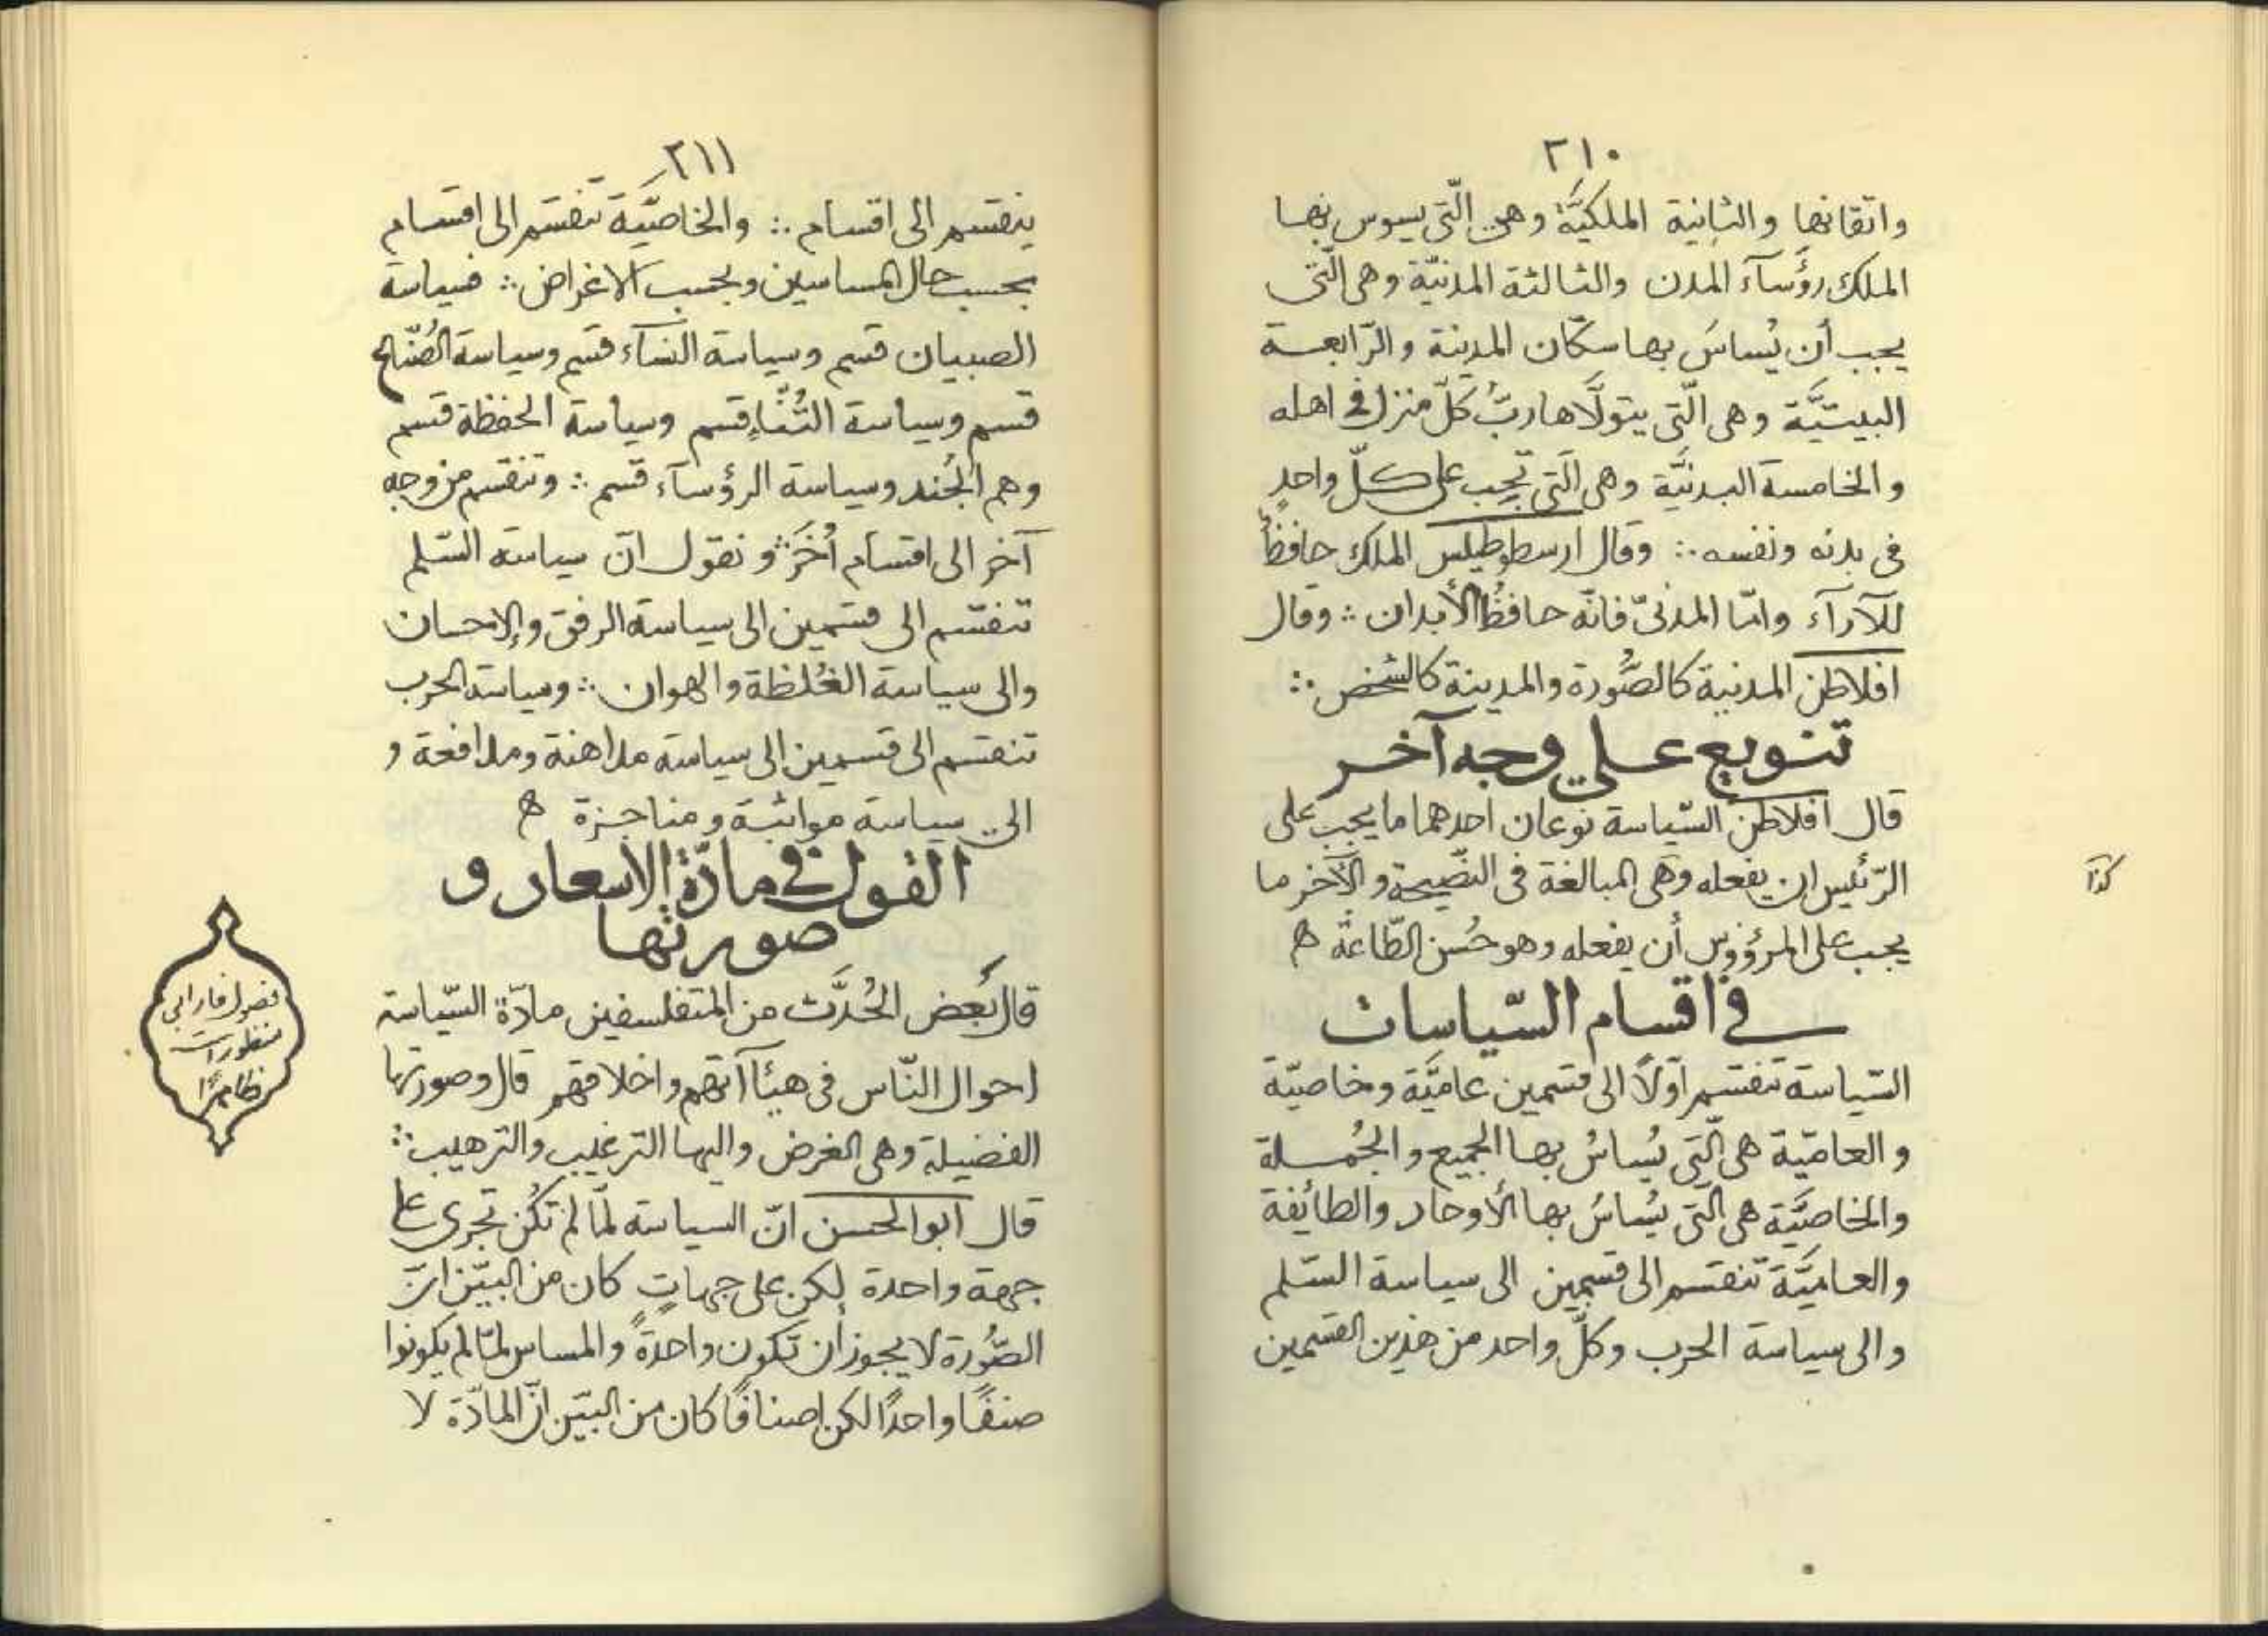 ٢١٠
واتقانها والثانية الملكيَّة وهي الّتي يسوس بها
الملك رؤسآء المدن والثالثة المدنيّة وهي الّتي
يجب أن يُساسَ بها سكّان المدينة والرّابعة
البيتيَّة وهي الّتي يتولّاها ربُّ كلّ منزل في اهله
والخامسة البدنيَّة وهي الّتي تجب على كلّ واحدٍ
في بدنه ونفسه ∴ وقال ارسطوطيلس الملك حافظٌ
للآرآء وامّا المدنيّ فانّه حافظُ الأبدان ∴ وقال
افلاطن المدنية كالصُّورة والمدينة كالشخص ∴
تنويع على وجه آخر
قال افلاطن السّياسة نوعان احدهما ما يجب على
الرّئيس ان يفعله وهي المبالغة في النّصيحة والآخر ما
كذا
يجب على المرؤوس أن يفعله وهو حُسن الطّاعة ه
في اقسام السّياسات
السّياسة تنقسم اوّلاً الى قسمين عاميَّة وخاصيّة
والعاميّة هي الّتي يُساسُ بها الجميع والجُملة
والخاصيَّة هي الّتي يُساسُ بها الأوحاد والطائفة
والعاميَّة تنقسم الى قسمين الى سياسة السّلم
والى سياسة الحرب وكلّ واحد من هذين القسمين
٢١١
ينقسم الى اقسام ∴ والخاصيَّة تنقسم الى اقسام
بحسب حال المساسين وبحسب الاغراض ∴ فسياسة
الصبيان قسم وسياسة النسآء قسم وسياسة الصُنّاع
قسم وسياسة التُنّاء قسم وسياسة الحفظة قسم
وهم الجُند وسياسة الرؤسآء قسم ∴ وتنقسم من وجه
آخر الى اقسام اُخَرَ ∴ ونقول انّ سياسة السّلم
تنقسم الى قسمين الى سياسة الرفق والإحسان
والى سياسة الغُلظة والهوان ∴ وسياسة الحرب
تنقسم الى قسمين الى سياسة مداهنة ومدافعة و
الى سياسة مواثبة ومناجزة ه
القول في مادّة الاسعار و
صورتها
قال بَعض الحُدَّث من المتفلسفين مادّة السّياسة
احوال النّاس في هيئاآتهم واخلاقهم قال وصورتها
الفضيلة وهي الغرض واليها الترغيب والترهيب ∴
قال ابو الحسن انّ السياسة لمّا لم تكُن تجرى على
جهة واحدة لكن على جهاتٍ كان من البيّن انّ
الصُّورة لا يجوز أن تكون واحدةً والمساس لمّا لم يكونوا
صنفًا واحدًا لكن اصنافًا كان من البيّن انّ المادّة لا
فصول فارابي
منظورات
ظاهرًا